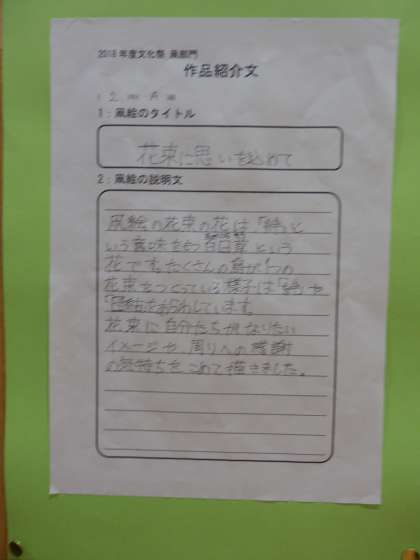 2018年度文化祭 凧部門
作品紹介文
1:凧絵のタイトル
花束に思いを込めて
2:凧絵の説明文
凧絵の花束の花は「絆」と
いう意味をもつ百日草という
花です。たくさんの鳥が1つの
花束をつくっている様子は「絆」や
「団結」をあらわしています。
花束に自分たちがなりたい
イメージや、周りへの感謝
の気持ちをこめて描きました。